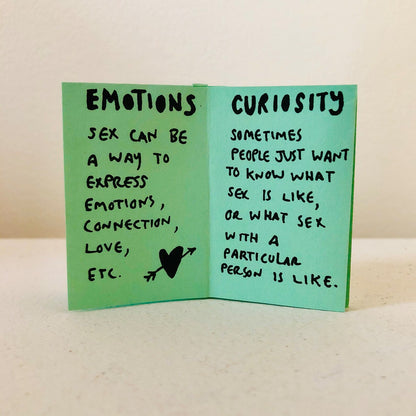 EMOTIONS
SEX CAN BE
A WAY TO
EXPRESS
EMOTIONS,
CONNECTION,
LOVE,
ETC.
CURIOSITY
SOMETIMES
PEOPLE JUST WANT
TO KNOW WHAT
SEX IS LIKE,
OR WHAT SEX
WITH A
PARTICULAR
PERSON IS LIKE.